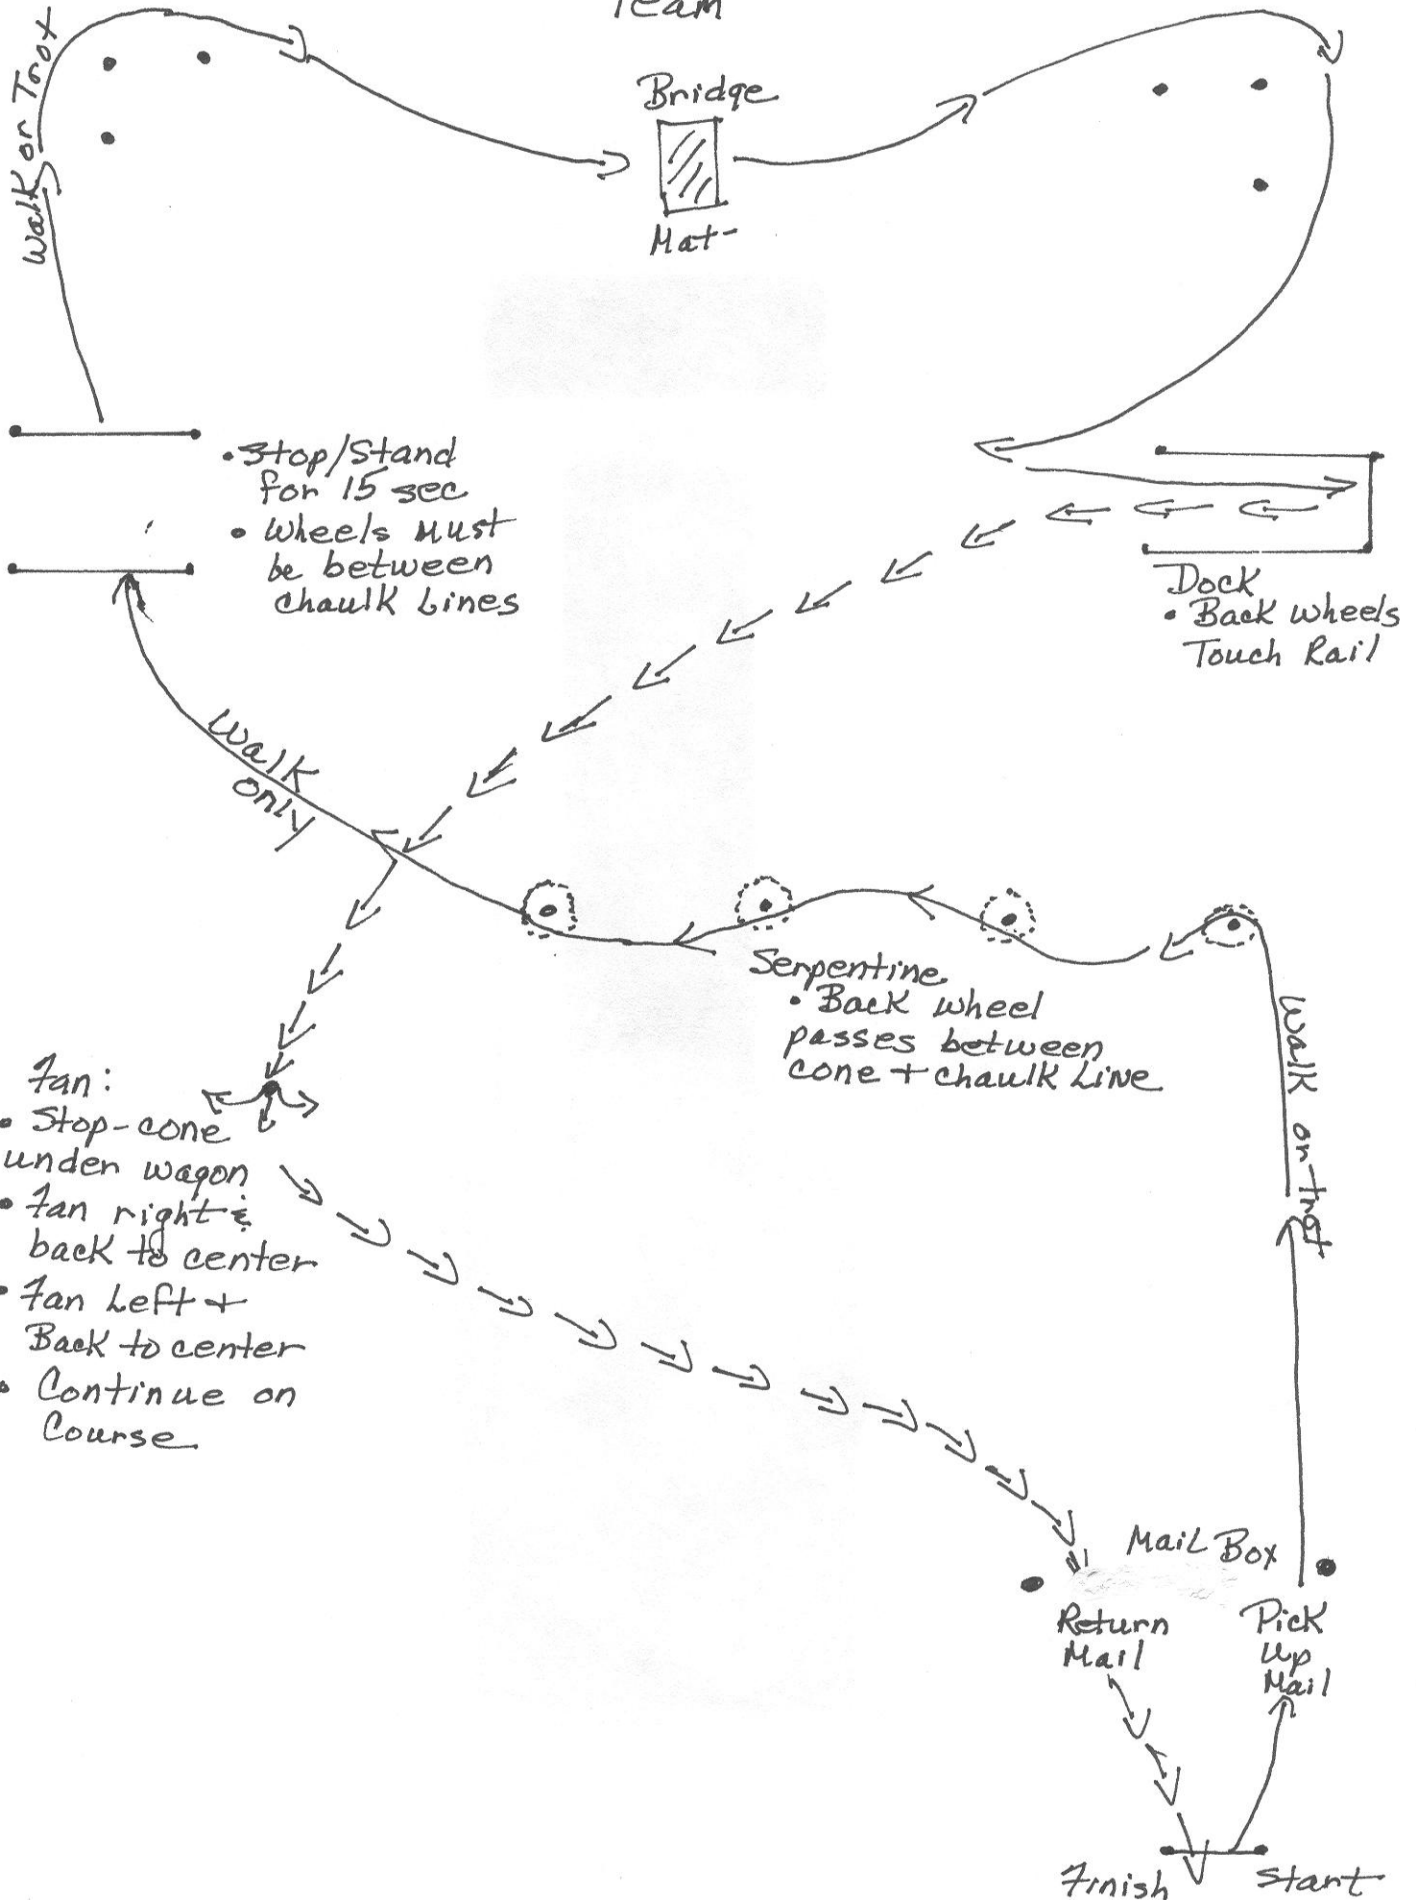 Team
Walk or Trot
Bridge
Mat
• Stop/Stand
for 15 sec
• Wheels Must
be between
chaulk Lines
Dock
• Back wheels
Touch Rail
Walk
only
Serpentine
• Back wheel
passes between
cone + chaulk Line
Walk or trot
Fan:
• Stop-cone
under wagon
• Fan right &
back to center
• Fan Left +
Back to center
• Continue on
Course
Mail Box
Return
Mail
Pick
Up
Mail
Finish
Start